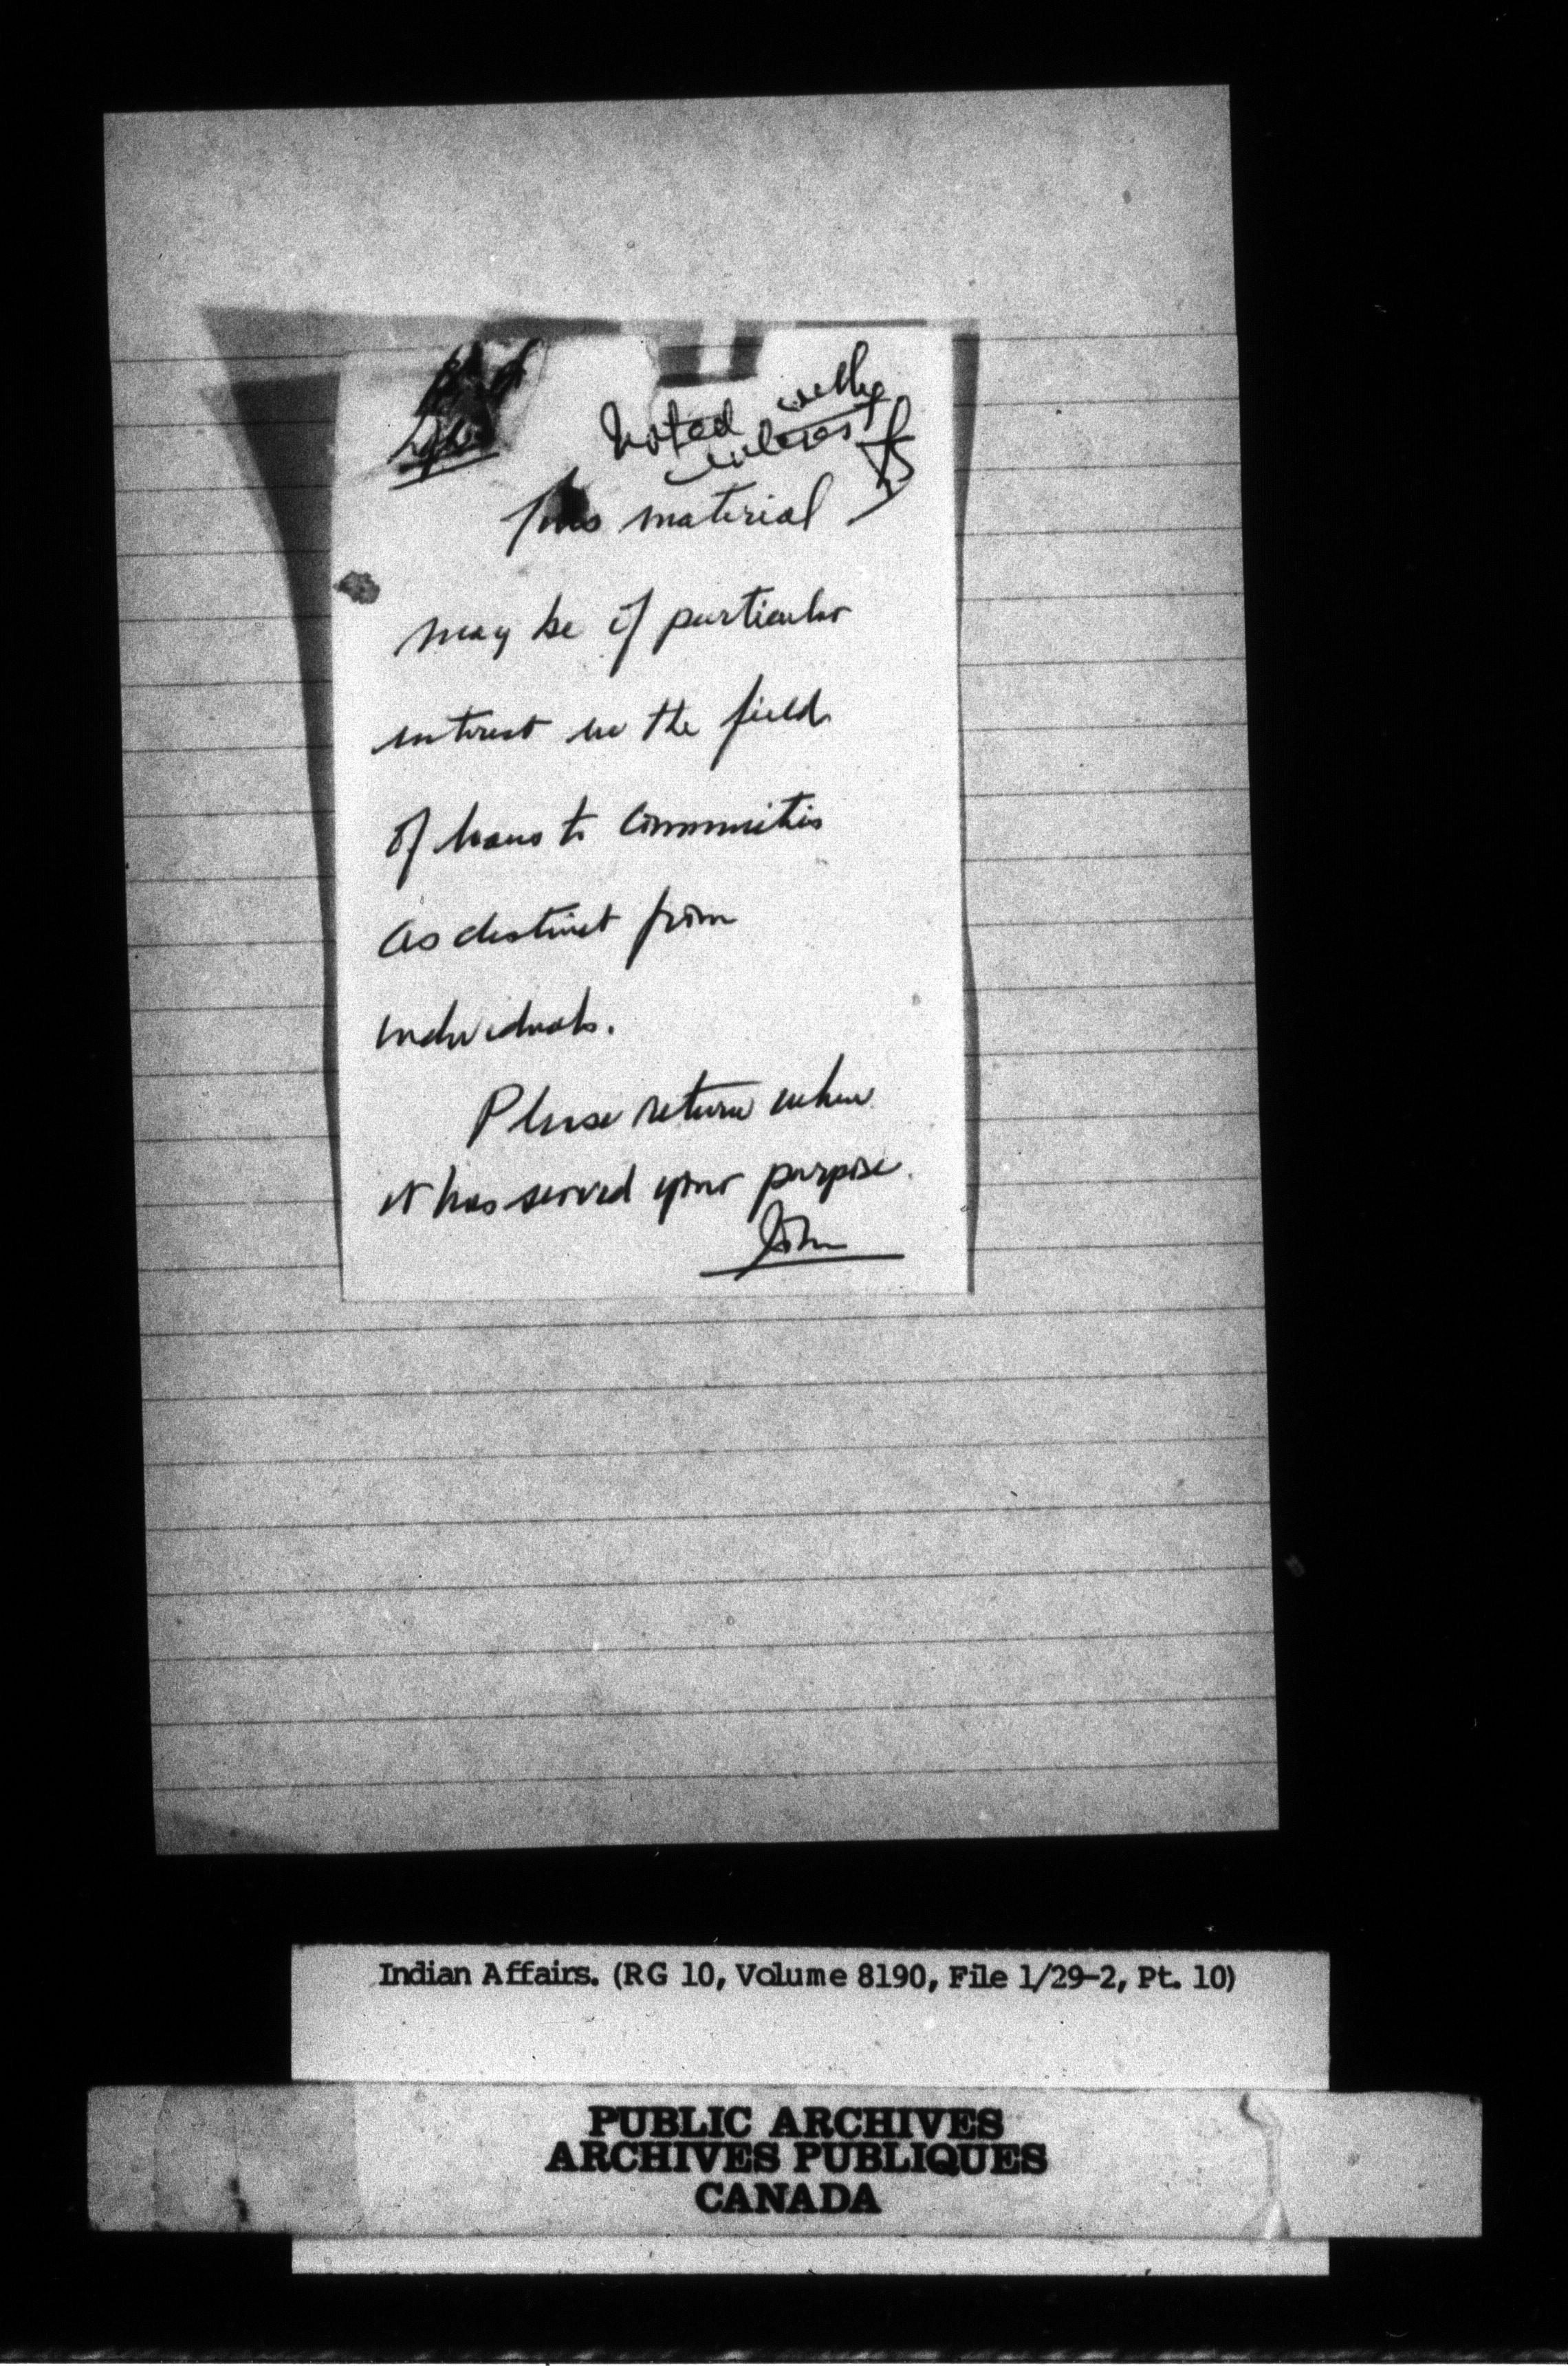 Noted with
interest
This material
may be of particular
interest in the field
of loans to communities
as distinct from
individuals.
Please return when
it has served your purpose.
John
Indian Affairs. (RG 10, Volume 8190, File 1/29-2, Pt. 10)
PUBLIC ARCHIVES
ARCHIVES PUBLIQUES
CANADA